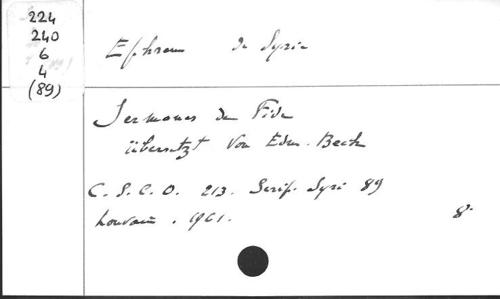 224
240
6
4
(89)
Ephraem de Syrie
Sermones de Fide
übersetzt von Edm. Beck
C.S.C.O. 213. Scrip. Syri 89
Louvain. 1961.
8°